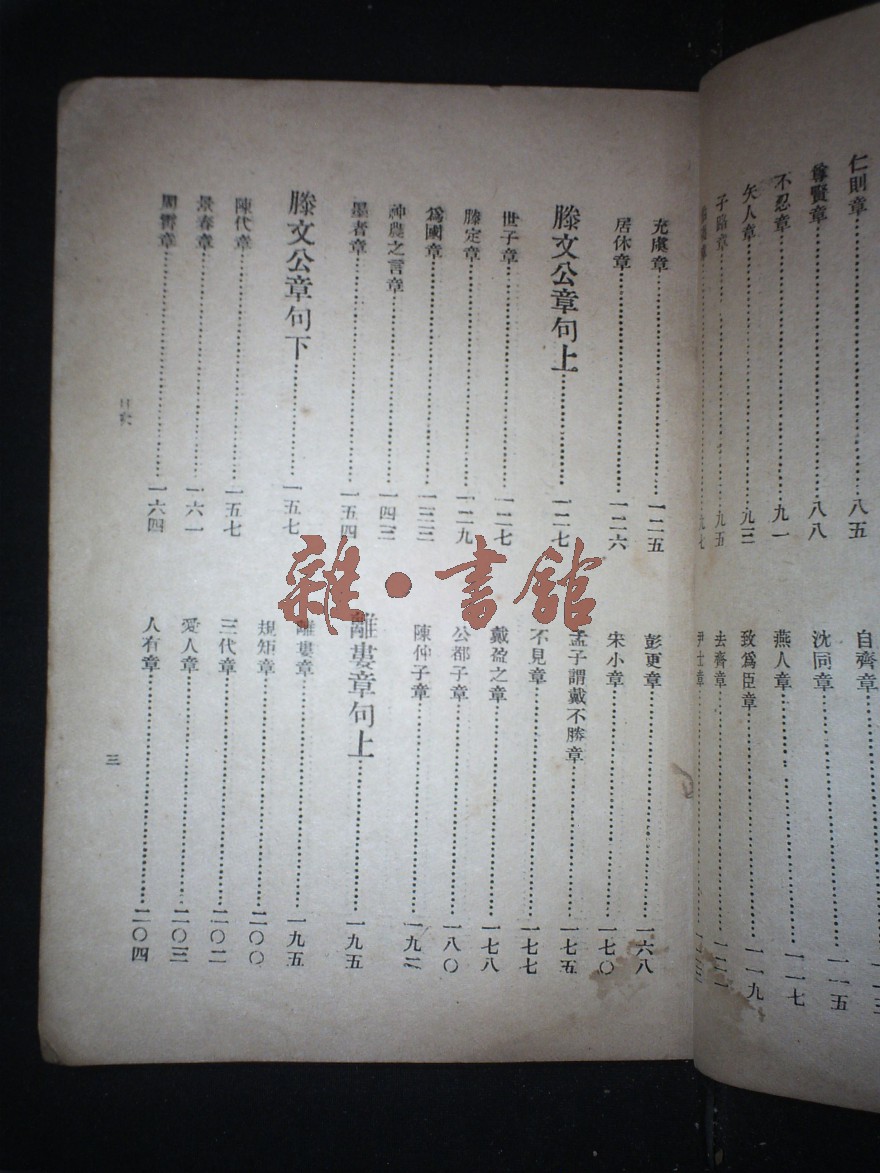 仁則章……八五
尊賢章……八八
不忍章……九一
矢人章……九三
子路章……九五
九七
自齊章
沈同章……一一五
燕人章……一一七
致爲臣章……一一九
去齊章……一二一
尹士章
充虞章……一二五
居休章……一二六
滕文公章句上……一二七
世子章……一二七
滕定章……一二九
爲國章……一三三
神農之言章……一四三
墨者章……一五四
滕文公章句下……一五七
陳代章……一五七
景春章……一六一
周霄章……一六四
彭更章……一六八
宋小章……一七〇
孟子謂戴不勝章……一七五
不見章……一七七
戴盈之章……一七八
公都子章……一八〇
陳仲子章……一九二
離婁章句上……一九五
離婁章……一九五
規矩章……二〇〇
三代章……二〇二
愛人章……二〇三
人有章……二〇四
目次
三
雜·書館